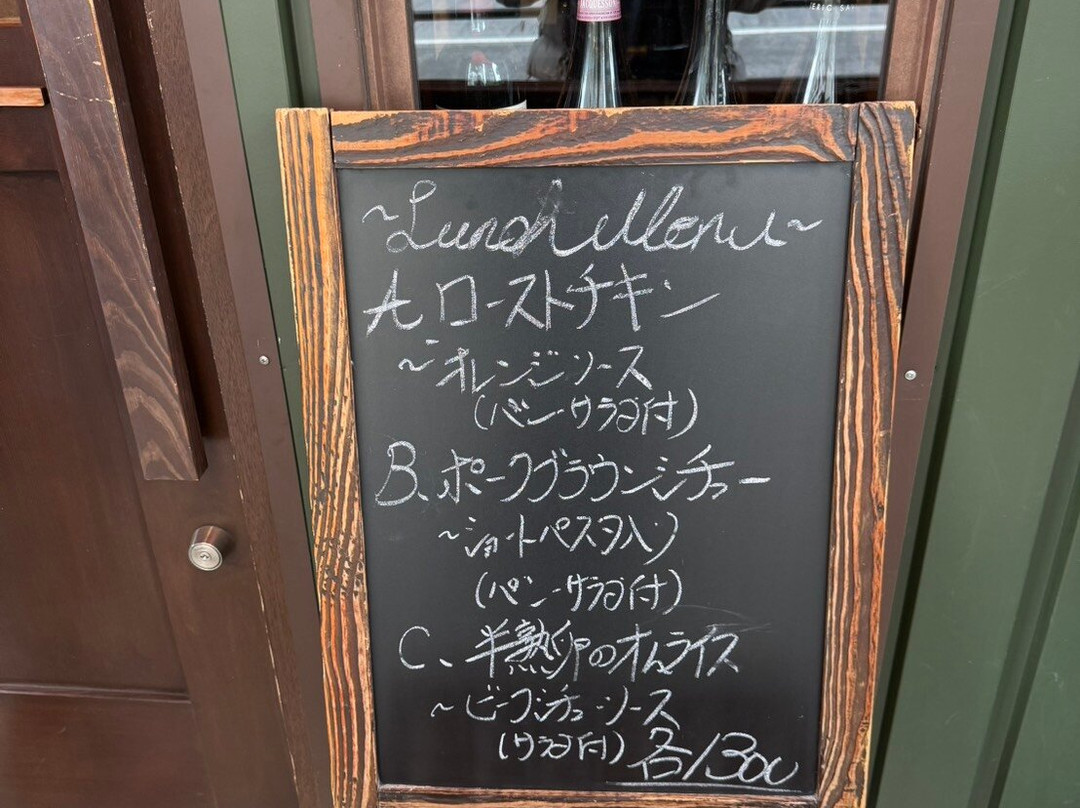 JACQUESSON
~Lunch Menu~
A ローストチキン
~オレンジソース
(パン・サラダ付)
B、ポークブラウンシチュー
~ショートパスタ入り
(パン・サラダ付)
C、半熟卵のオムライス
~ビーフシチューソース
(サラダ付) 各1300